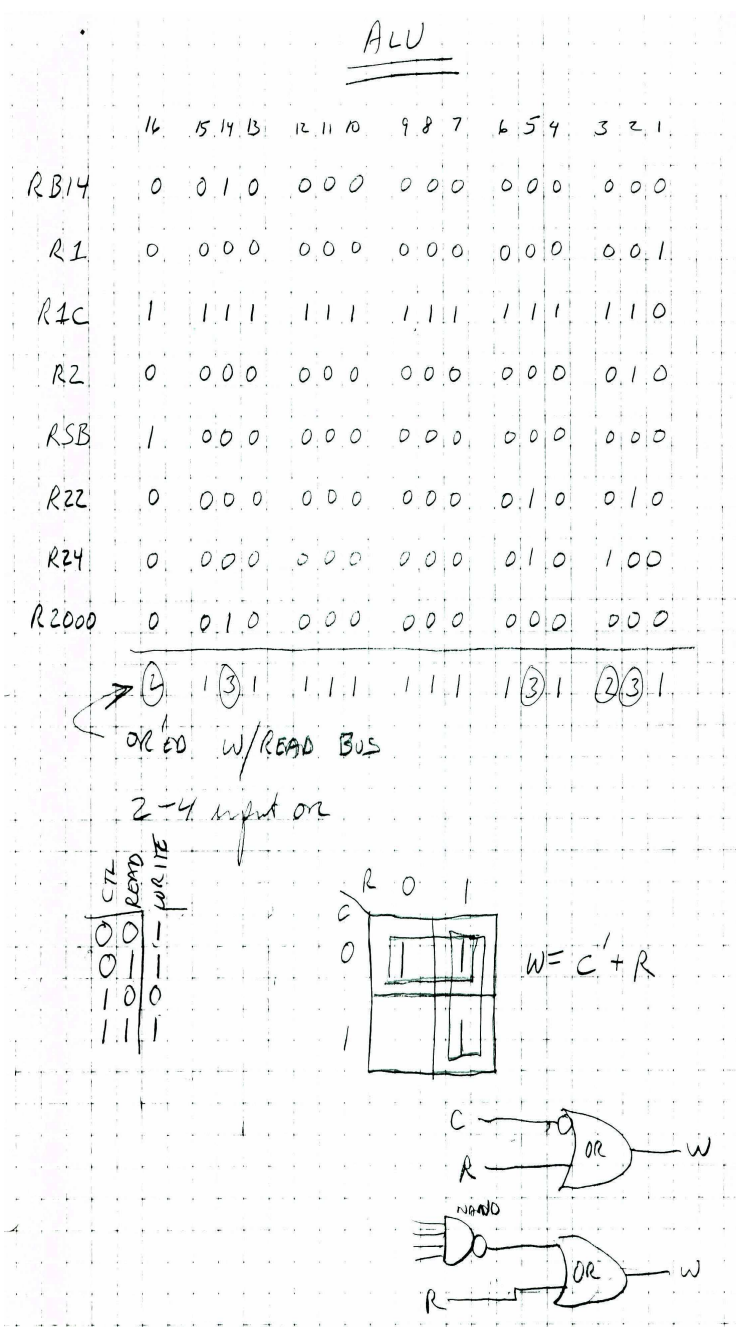 ALU
16 15 14 13 12 11 10 9 8 7 6 5 4 3 2 1
RB14 0 0 1 0 0 0 0 0 0 0 0 0 0 0 0 0
R1 0 0 0 0 0 0 0 0 0 0 0 0 0 0 0 1
R1C 1 1 1 1 1 1 1 1 1 1 1 1 1 1 1 0
R2 0 0 0 0 0 0 0 0 0 0 0 0 0 0 1 0
RSB 1 0 0 0 0 0 0 0 0 0 0 0 0 0 0 0
R22 0 0 0 0 0 0 0 0 0 0 0 1 0 0 1 0
R24 0 0 0 0 0 0 0 0 0 0 0 1 0 1 0 0
R2000 0 0 1 0 0 0 0 0 0 0 0 0 0 0 0 0
2 1 3 1 1 1 1 1 1 1 1 3 1 2 3 1
OR'ED W/READ BUS
2-4 input or
CTL READ WRITE
0 0 1
0 1 1
1 0 0
1 1 1
R 0 1
C
0 1 1 W= C' + R
1 1
C
OR W
R
NAND
OR W
R